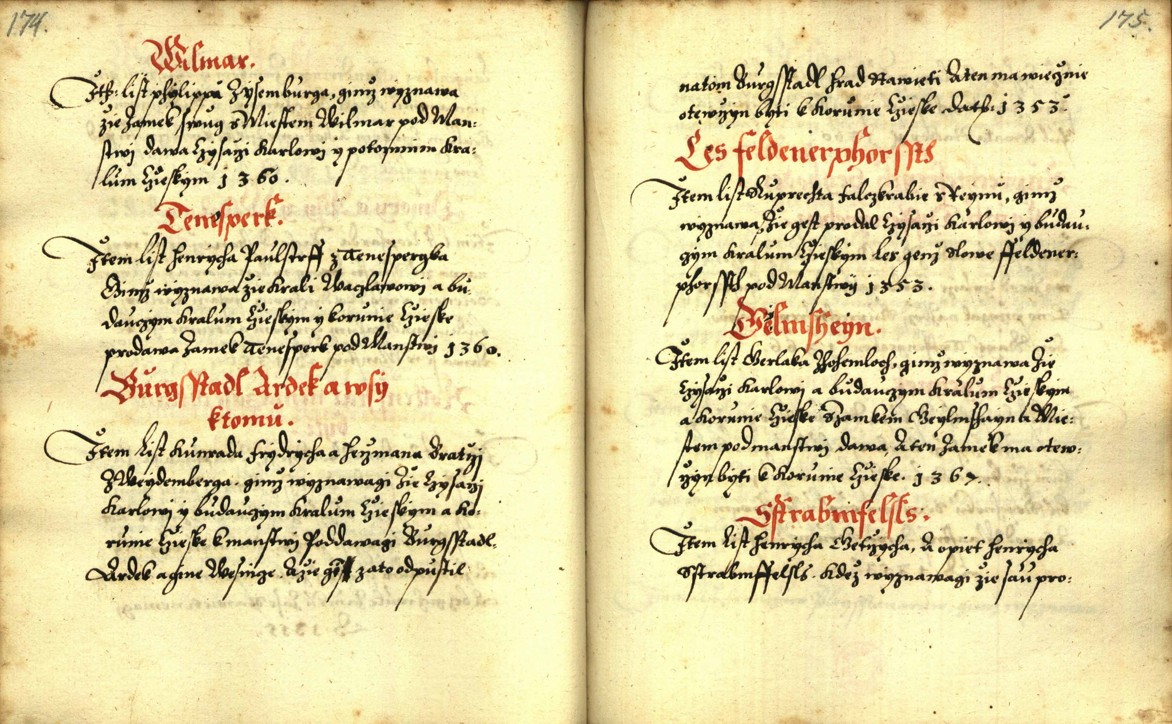 174.
Wilmar.
Ite: list Philippa z ysemburga, gimz wyznawa
zie Zamek swug s Miestem Wilmar pod Man:
stwj dawa Cysarzi Karlowj y potomnim Kra:
lum Czieskym 1360.
Tenesperk.
Item list henrycha Paulstrff z Tenespergka
Gimz wyznawa zie Krali Waczlawowj a bu:
dauczym Kralum Czieskym y korunie Czieske
prodawa Zamek Tenesperk pod Manstwj 1360.
Burgsstadl Ardek a wsy
ktomu.
Item List Kunrada Frydrycha a herzmana bratrzj
z Weydemberga. gimz wyznawagi zie Cysarzj
Karlowj y budauczym Kralum Czieskym a Ko:
runie Czieske k manstwj Poddawagi Burgsstadl.
Ardek a gine Wesnize. A zie zato odpustil
175.
natom Burgsstadl hrad stawieti A ten ma wiecznie
otewrzyn byti k Korunie Czieske. Date. 1353.
Les feldenerphorssts
Item list Ruprechta falczkrabie s Reynu, gimz
wyznawa, zie gest prodal Cysarzi Karlowj y budau:
gym Kralum Czieskym les genz slowe ffeldener:
phorssth pod Manstwij 1353.
Gelnsheyn.
Item list Gerlaka z hohemloch, gimz wyznawa zie
Cysarzi Karlowj a budauczym Kralum Czieskym
a Korunie Czieske s Zamkem Geylnshayn a Mie:
stem pod manstwj dawa, A ten Zamek ma otew:
rzyn byti k Korunie Czieske. 1367.
Sstrabmfelsls.
Item List henrycha A opiet henrycha
Sstrabmffelsls. Kdez wyznawagi zie sau pro: